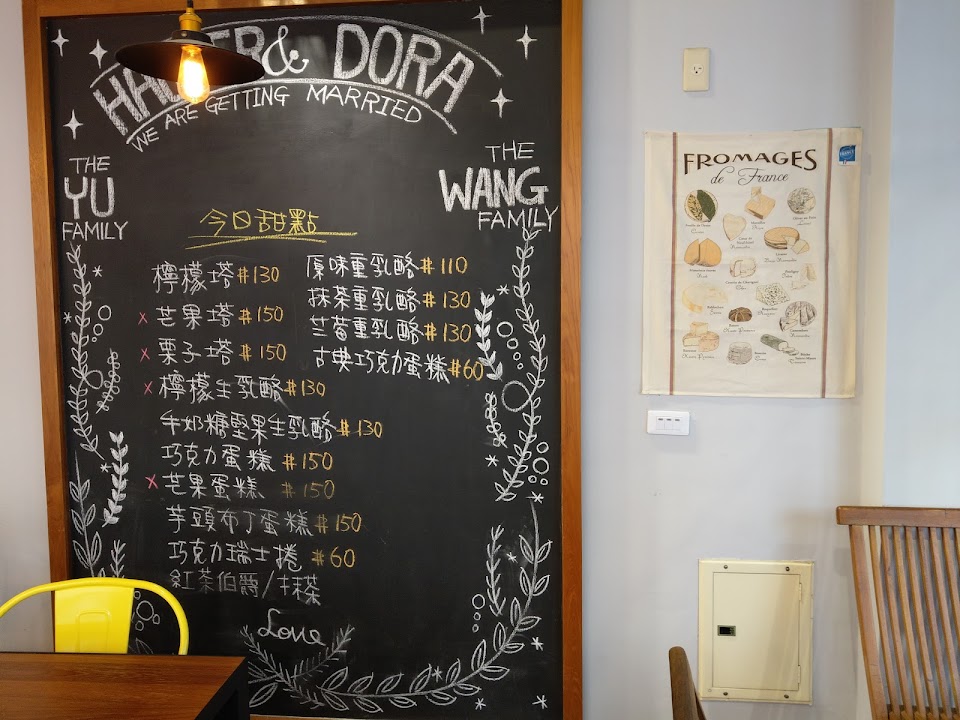 & DORA
WE ARE GETTING MARRIED
THE
YU
FAMILY
THE
WANG
FAMILY
今日甜點
檸檬塔 #130
x 芒果塔 #150
x 栗子塔 #150
x 檸檬生乳酪 #130
牛奶糖堅果生乳酪 #130
巧克力蛋糕 #150
x 芒果蛋糕 #150
芋頭布丁蛋糕 #150
巧克力瑞士捲 #60
紅茶伯爵/抹茶
原味重乳酪 #110
抹茶重乳酪 #130
兰莓重乳酪 #130
古典巧克力蛋糕 #60
Love
FROMAGES
de France